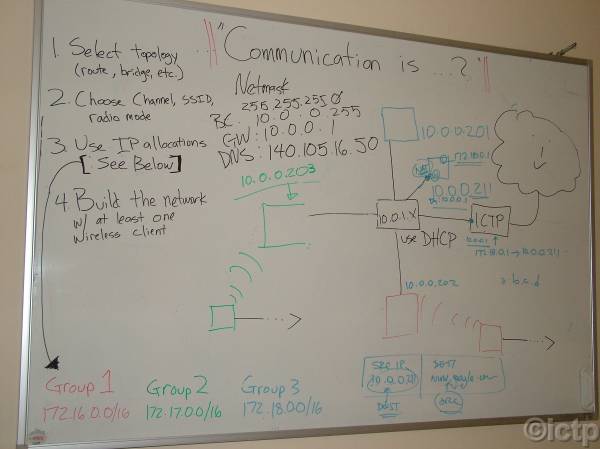 "Communication is ...?"
1. Select topology
(route, bridge, etc.)
2. Choose Channel, SSID,
radio mode
3. Use IP allocations
[See Below]
4. Build the network
w/ at least one
wireless client
Netmask
255.255.255.0
BC: 10.0.0.255
GW: 10.0.0.1
DNS: 140.105.16.50
10.0.0.203
10.0.0.201
172.18.0.1
10.0.0.211
10.0.0.1
10.0.1.X
ICTP
use DHCP
10.0.0.1
172.18.0.1 → 10.0.0.211
10.0.0.202
→ b.c.d
!
SRC IP
10.0.0.211
DEST
DEST
www.google.com
SRC
Group 1
172.16.0.0/16
Group 2
172.17.0.0/16
Group 3
172.18.0.0/16
©ictp